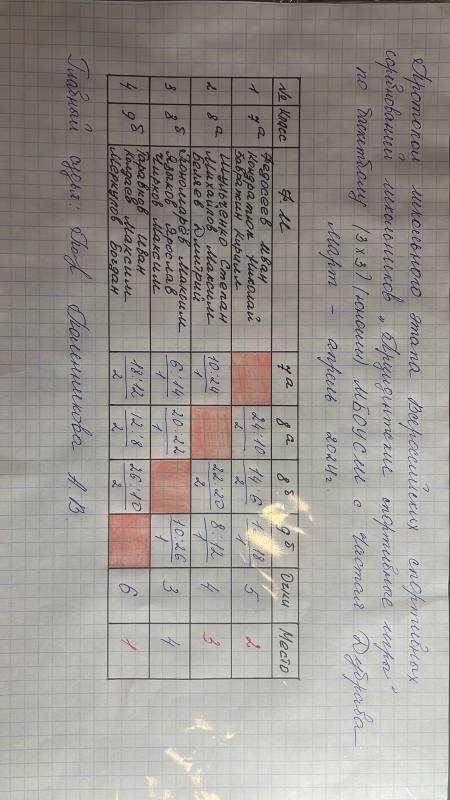 Протокол школьного этапа Всероссийских спортивных
соревнований школьников „Президентские спортивные игры"
по баскетболу (3х3) (юноши) МБОУСШ с. Частая Дубрава
март - апрель 2024г.
№ Класс Ф И 7а 8а 8б 9б Очки Место
1 7а Федосеев Иван
Кондратюк Николай
Кирилл 24:10 2 14:6 2 12:18 1 5 2
2 8а Шульченко Степан
Михайлов Максим
Беляев Дмитрий 10:24 1 22:20 2 8:12 1 4 3
3 8б Пономарёв Максим
Ярослав
Максим 6:14 1 20:22 1 10:26 1 3 4
4 9б Иван
Максим
Меркулов Богдан 18:12 2 12:8 2 26:10 2 6 1
Главный судья: А В